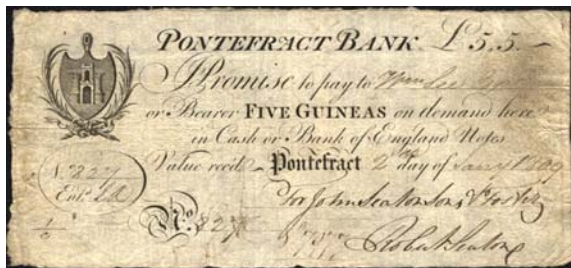 PONTEFRACT BANK £5,5.—
I Promise to pay to Wm Lee
or Bearer FIVE GUINEAS on demand here
in Cash or Bank of England Notes
Value recd. Pontefract 2nd day of Jany 1809
No. 827
Entd.
For John Seaton Sons & Foster
No. 827
Robert Seaton